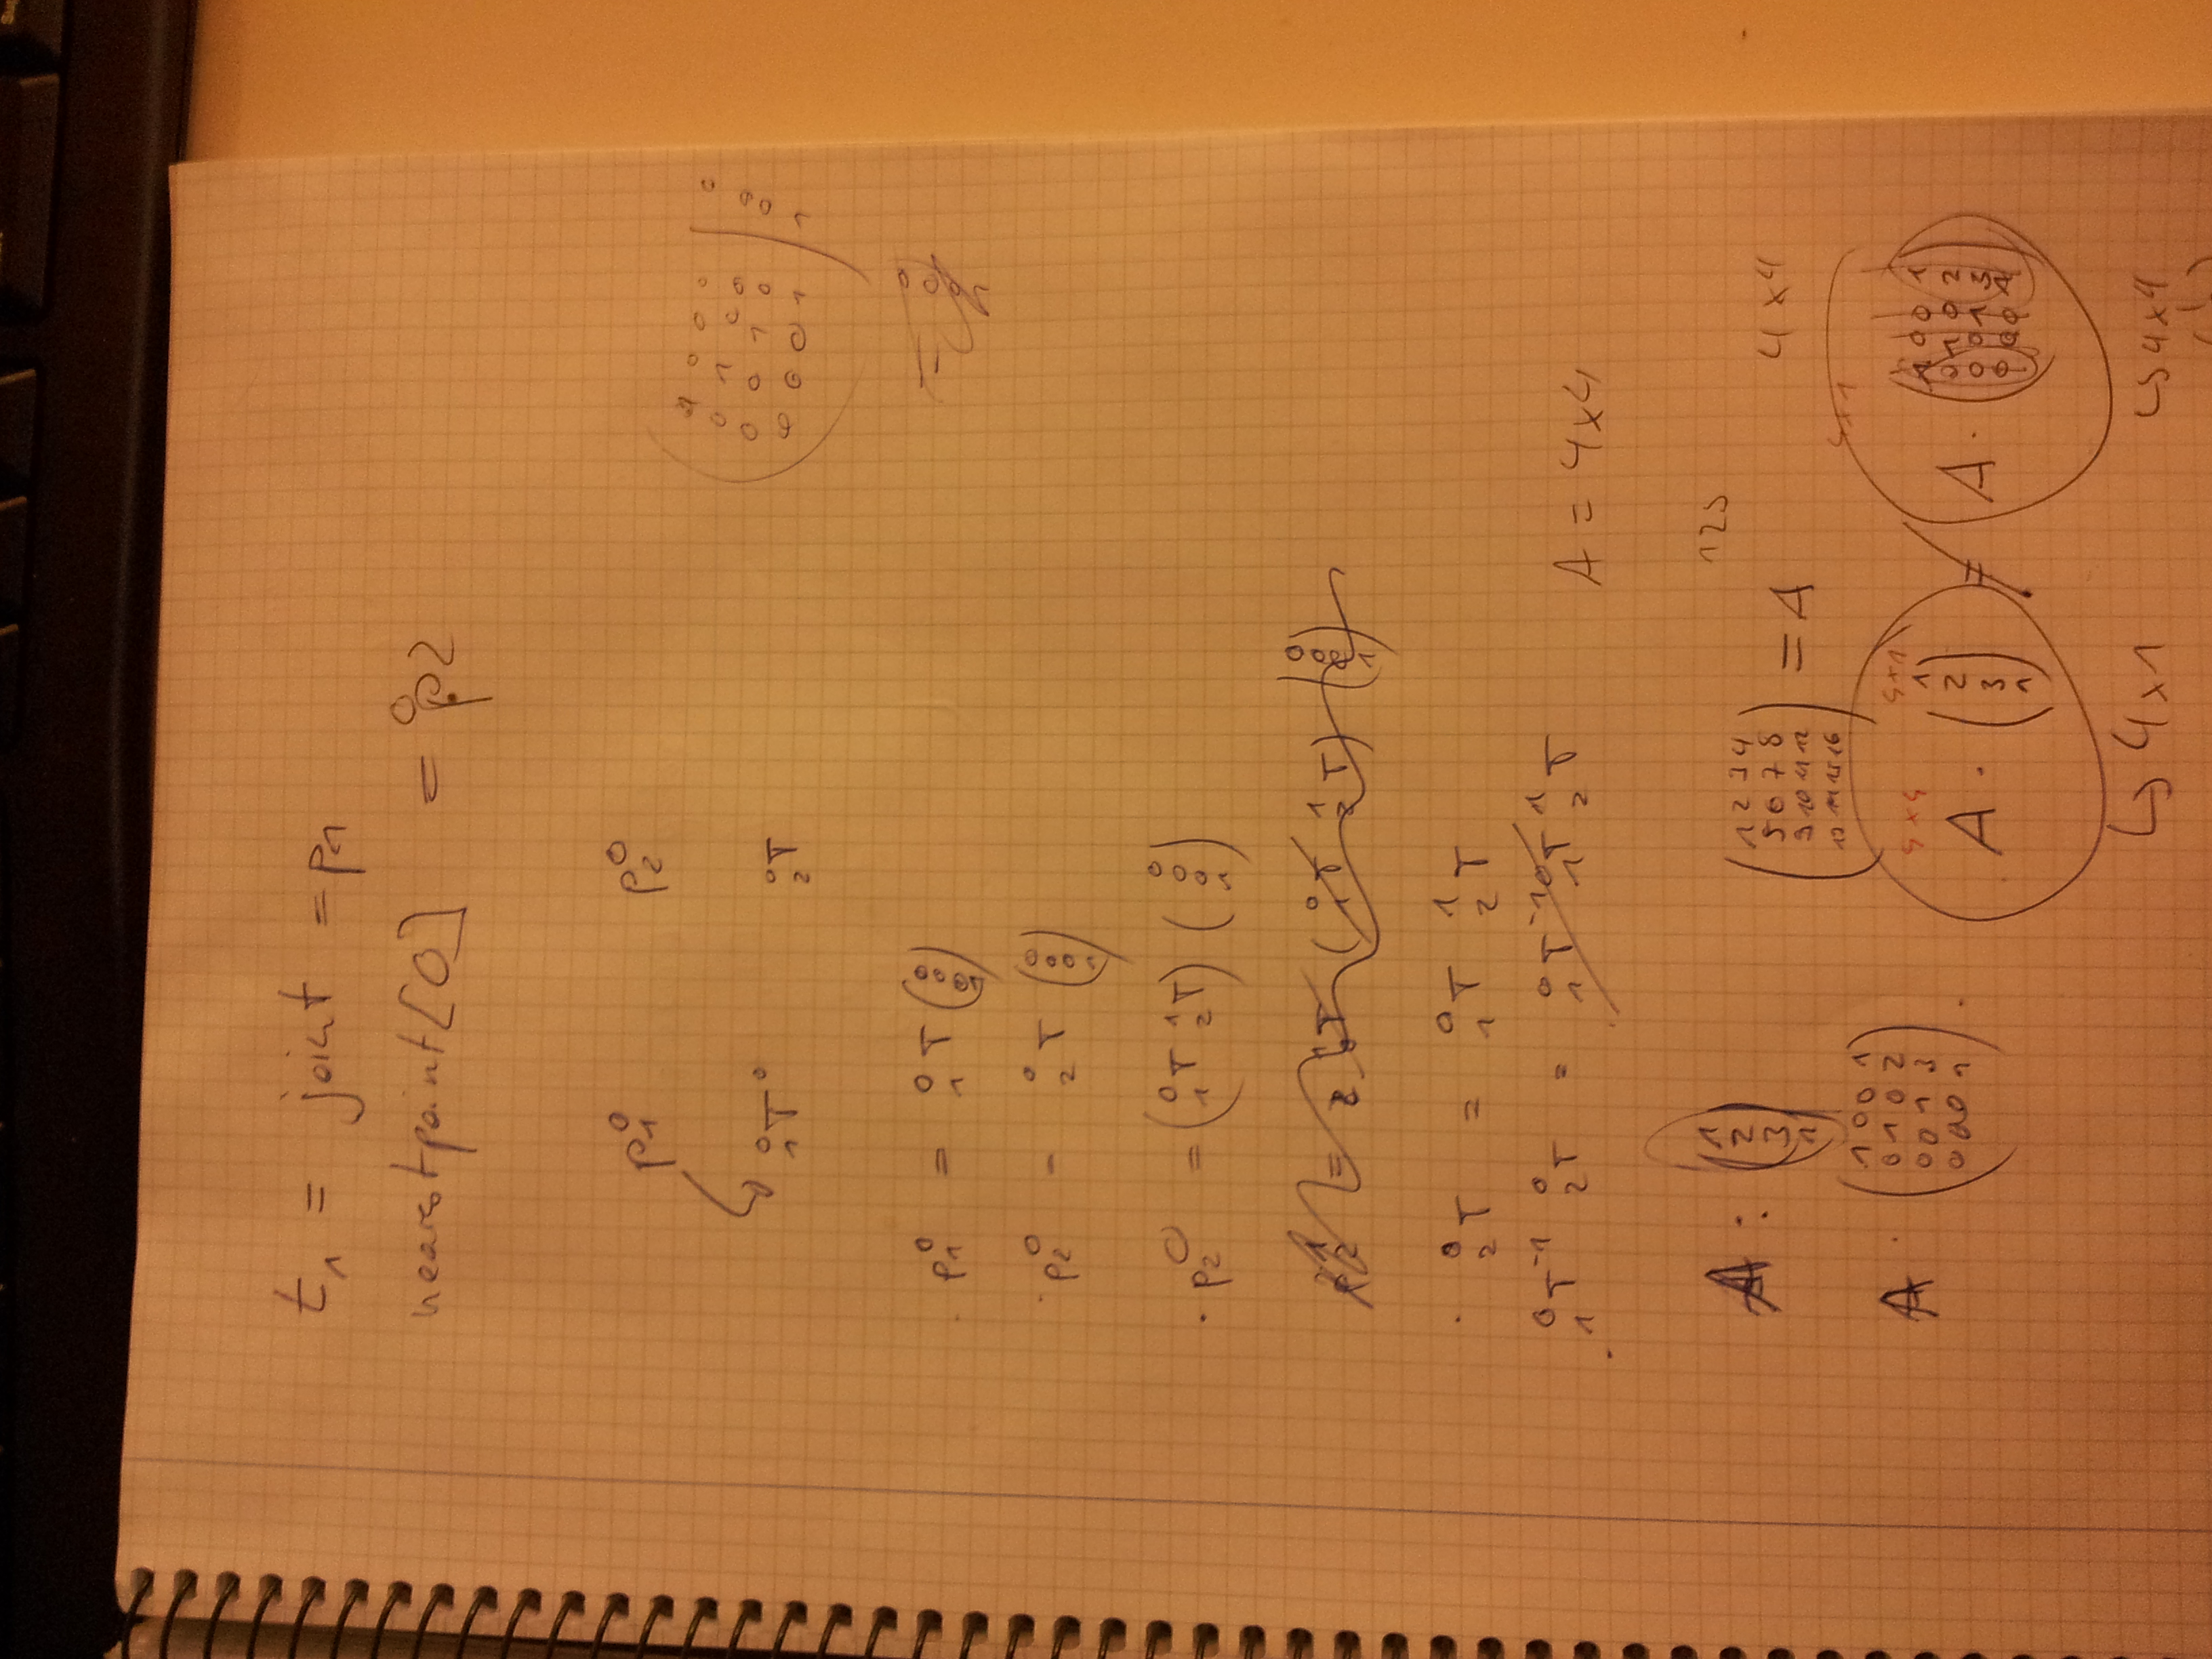 t₁ = joint = p₁
nearestpoint[0] = ⁰p2
p₁⁰ p₂⁰
⁰₁T⁰ ⁰₂T
1 0 0 0 | 0
0 1 0 0 | 0
0 0 1 0 | 0
0 0 0 1 | 1
=
0
0
0
1
· p₁⁰ = ⁰₁T (0 0 0 1)
· p₂⁰ = ⁰₂T (0 0 0 1)
· p₂⁰ = (⁰₁T ¹₂T) (0 0 0 1)
= (⁰₁T ¹₂T) (0 0 0 1)
· ⁰₂T = ⁰₁T ¹₂T
⁰₁T⁻¹ ⁰₂T = ⁰₁T⁻¹ ⁰₁T ¹₂T
A = 4x4
A : (1 2 3 1)
123
1 2 3 4
5 6 7 8
9 10 11 12
13 14 15 16
= A
4x4
A · (
1 0 0 1
0 1 0 2
0 0 1 3
0 0 0 1
) .
4x4 4x1
A · (1 2 3 1) =
4x1
A · (
1 0 0 1
0 1 0 2
0 0 1 3
0 0 0 1
)
↳ 4x1
↳ 4x4